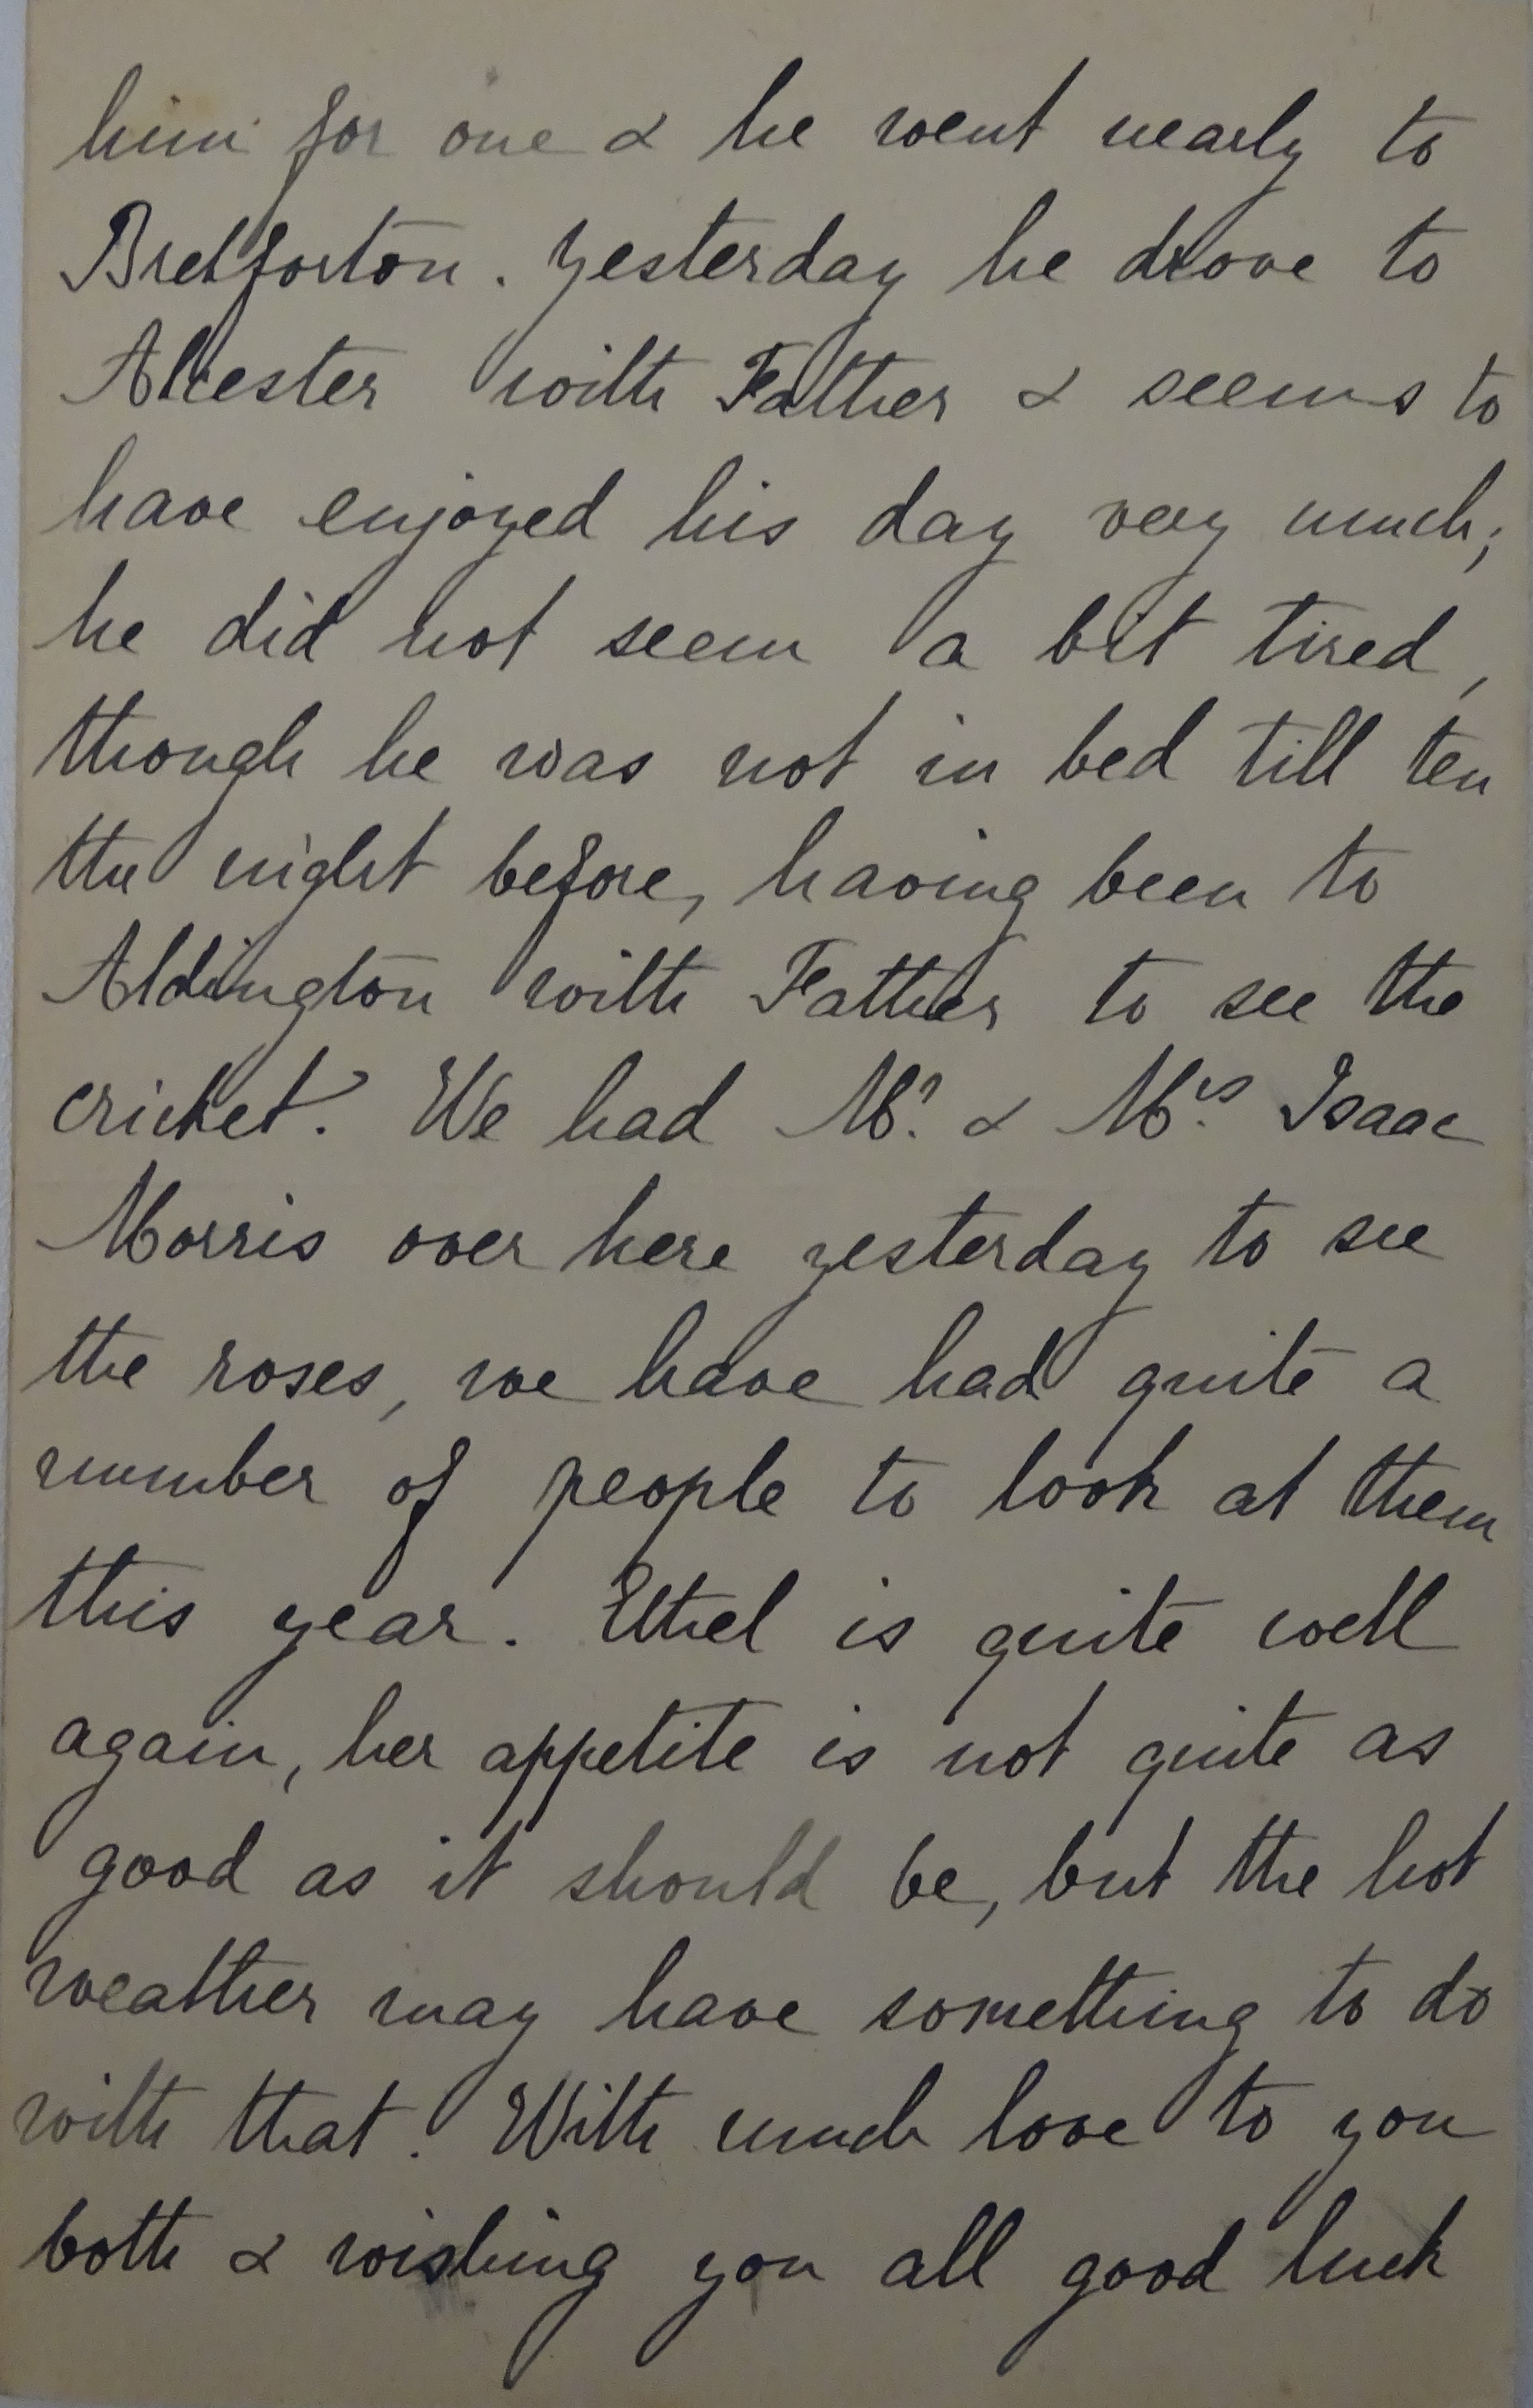 him for one & he went nearly to
Bretforton. Yesterday he drove to
Alcester with Father & seems to
have enjoyed his day very much;
he did not seem a bit tired,
though he was not in bed till ten
the night before, having been to
Aldington with Father to see the
cricket. We had Mr. & Mrs. Isaac
Morris over here yesterday to see
the roses, we have had quite a
number of people to look at them
this year. Ethel is quite well
again, her appetite is not quite as
good as it should be, but the hot
weather may have something to do
with that. With much love to you
both & wishing you all good luck